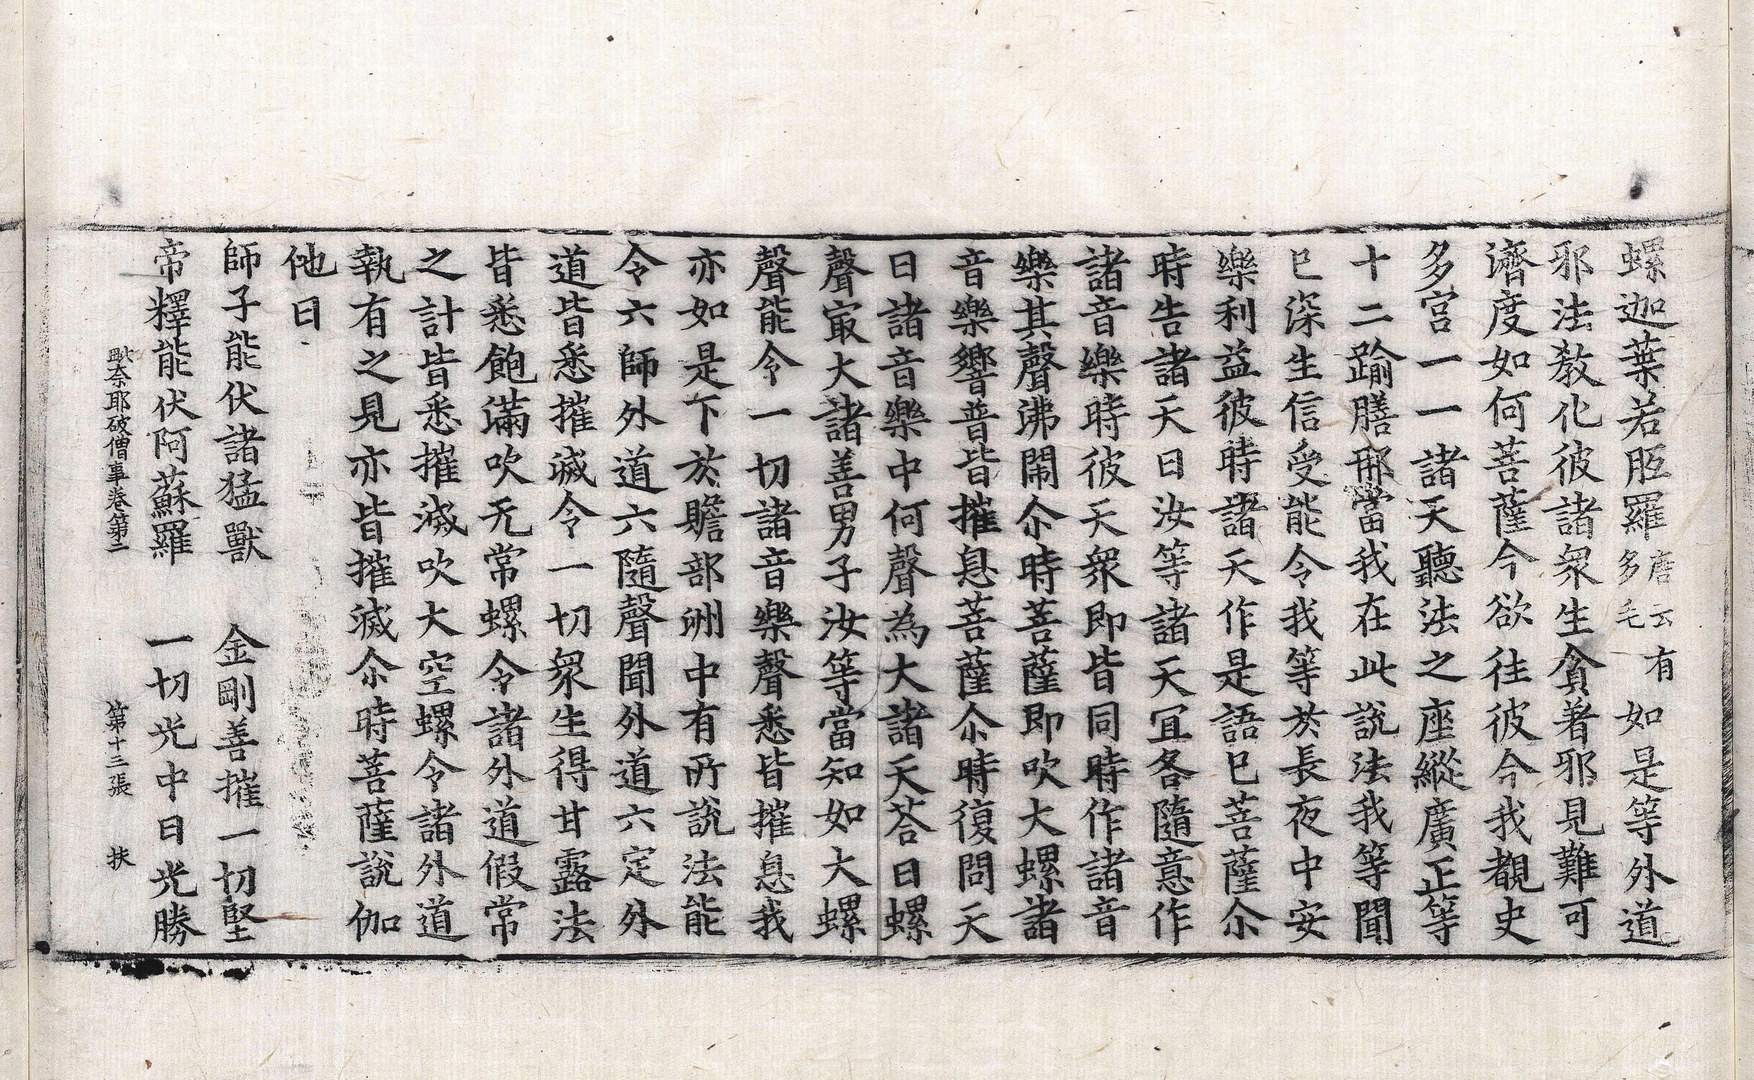 螺迦葉若胝羅唐云有多毛如是等外道
邪法教化彼諸衆生貪著邪見難可
濟度如何菩薩今欲往彼今我覩史
多宮一一諸天聽法之座縱廣正等
十二踰膳那當我在此說法我等聞
已深生信受能令我等於長夜中安
樂利益彼時諸天作是語已菩薩尒
時告諸天曰汝等諸天冝各隨意作
諸音樂時彼天衆即皆同時作諸音
樂其聲沸閙尒時菩薩即吹大螺諸
音樂響普皆摧息菩薩尒時復問天
曰諸音樂中何聲為大諸天荅曰螺
聲㝡大諸善男子汝等當知如大螺
聲能令一切諸音樂聲悉皆摧息我
亦如是下於贍部洲中有所說法能
令六師外道六隨聲聞外道六定外
道皆悉摧滅令一切衆生得甘露法
皆悉飽滿吹无常螺令諸外道假常
之計皆悉摧滅吹大空螺令諸外道
執有之見亦皆摧滅尒時菩薩說伽
他曰
師子能伏諸猛獸　金剛善摧一切堅
帝釋能伏阿蘇羅　一切光中日光勝
奈耶破僧事卷第二　第十三張　扶